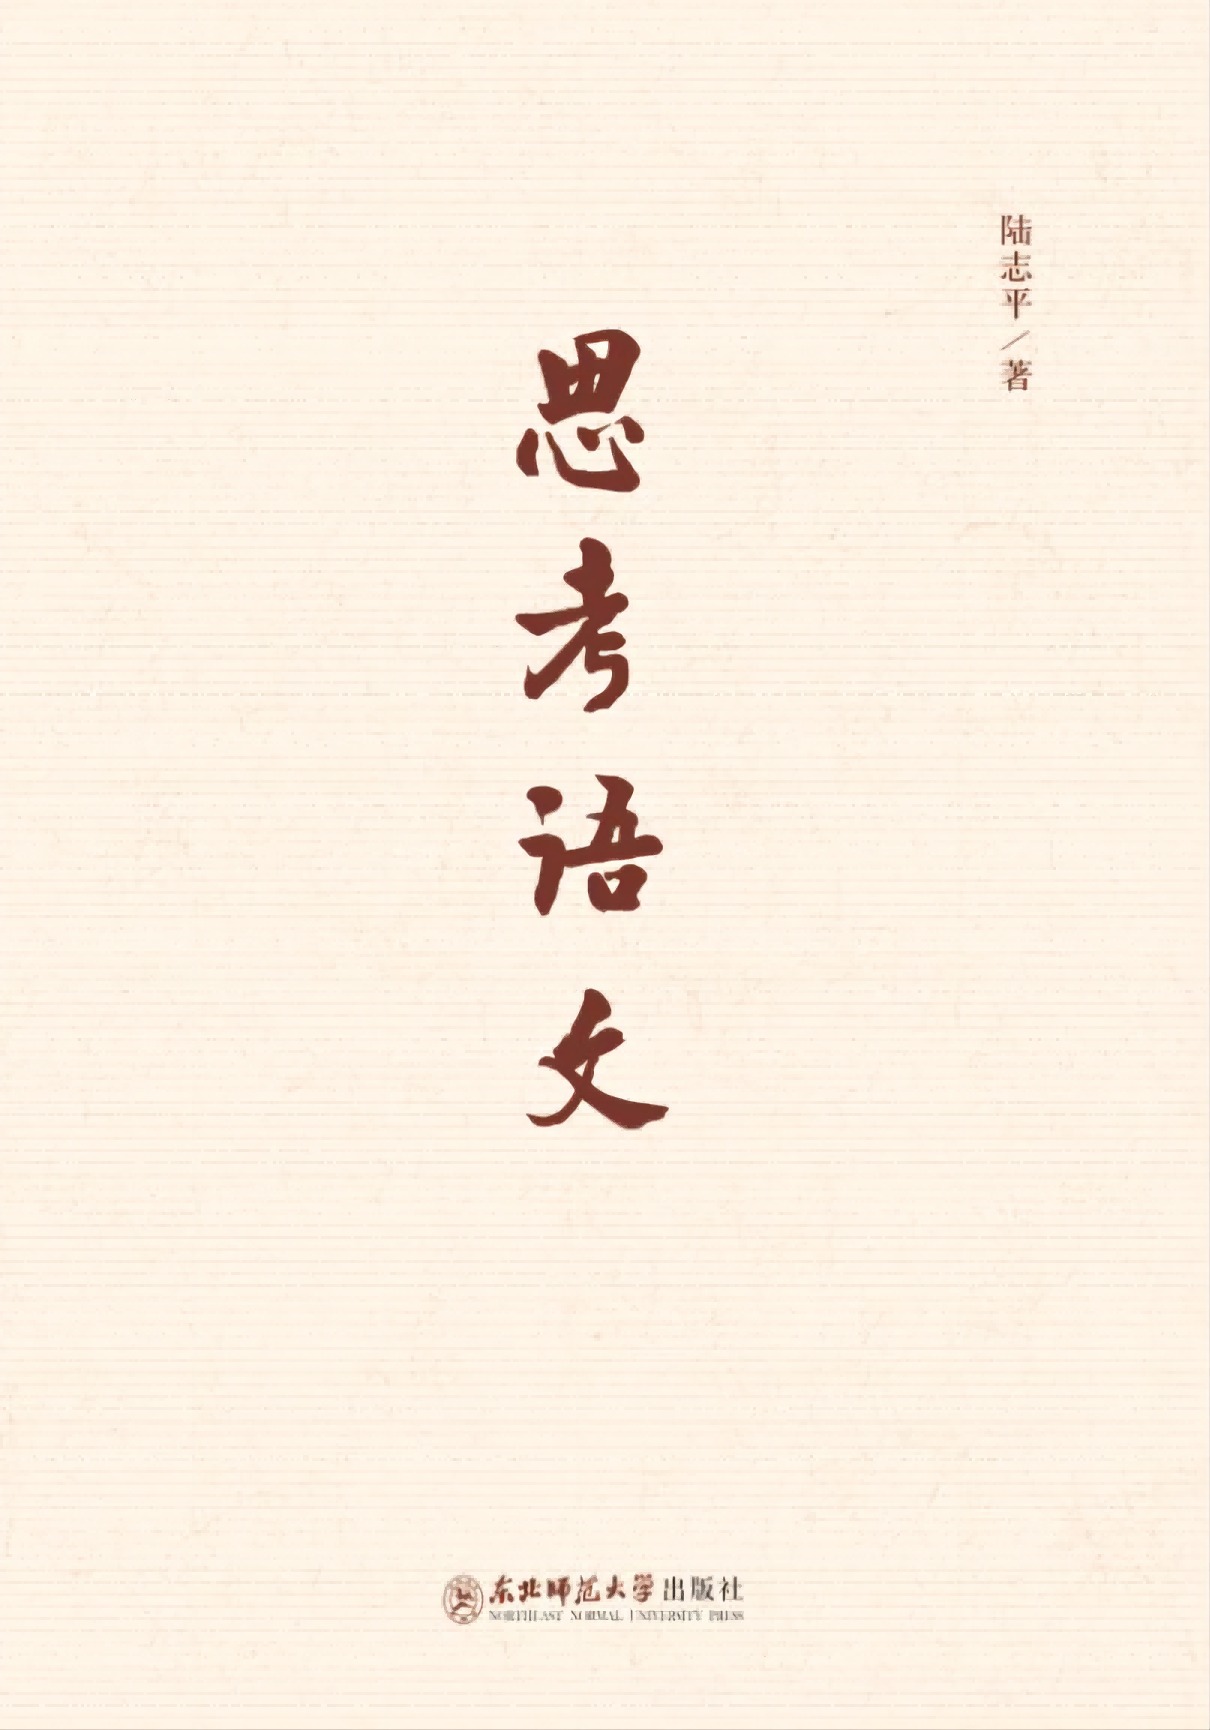 陆志平／著
思考语文
东北师范大学出版社
NORTHEAST NORMAL UNIVERSITY PRESS